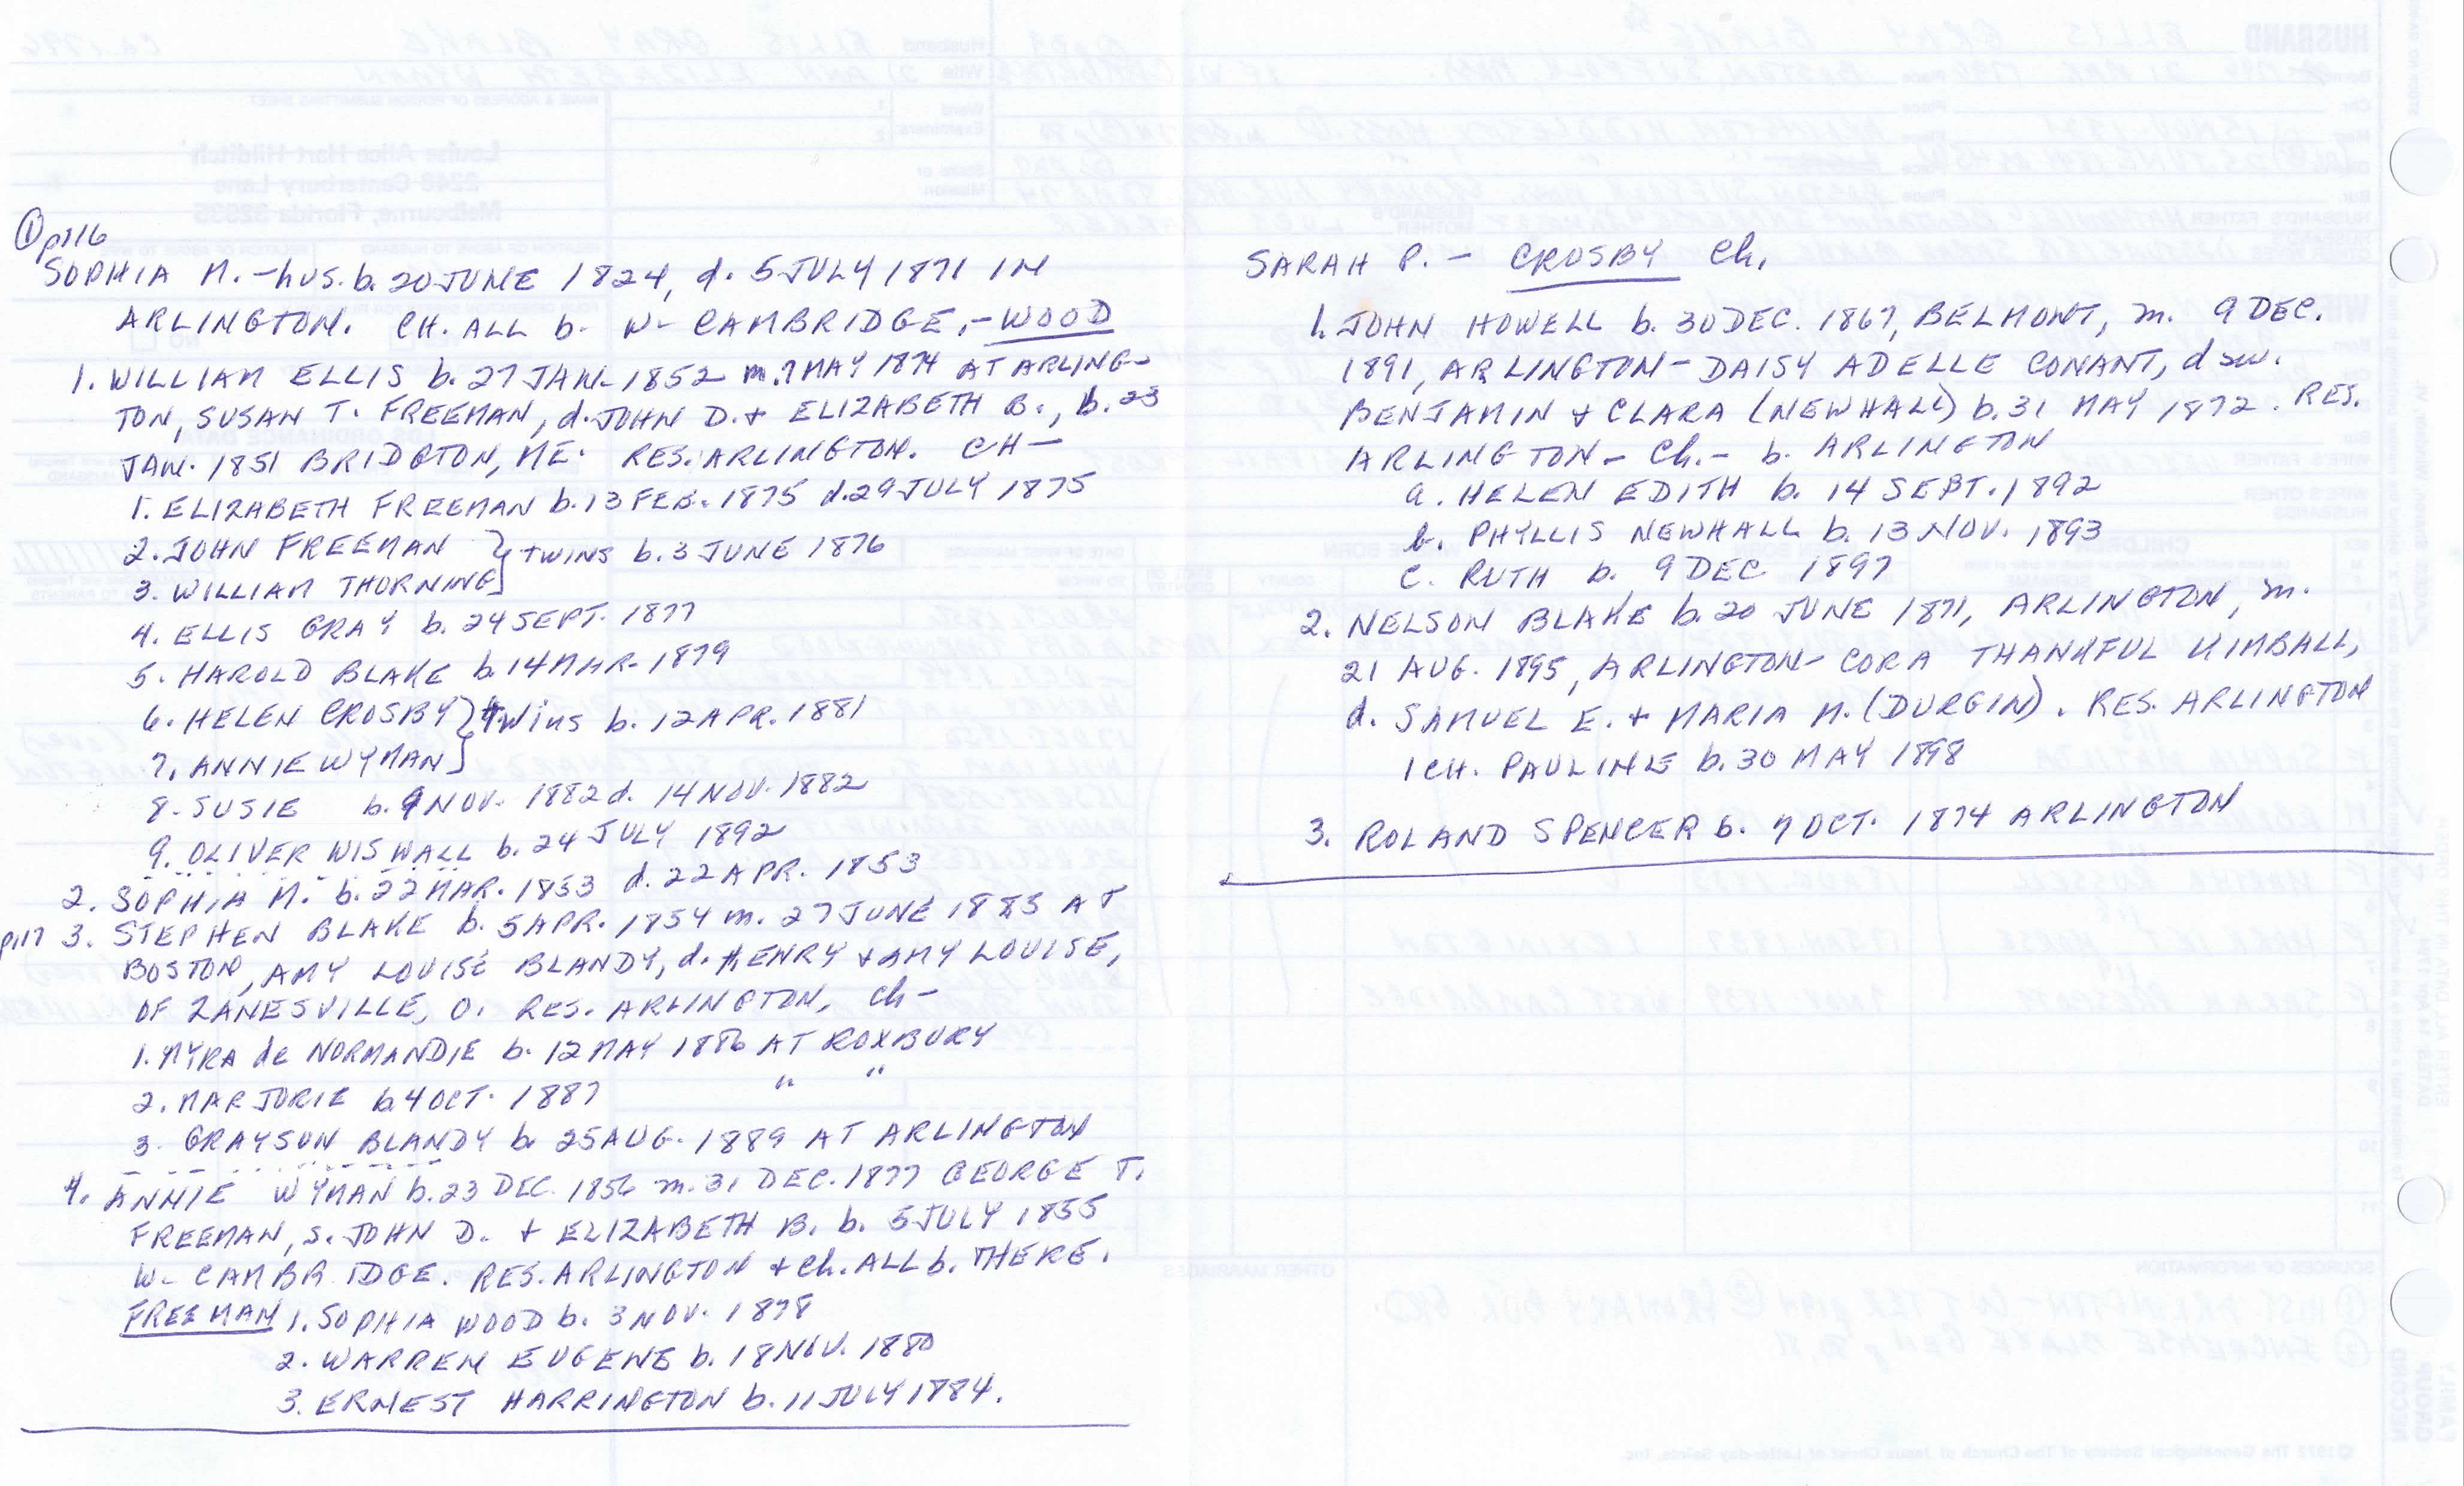 ① p116
SOPHIA M. - hus. b. 20 JUNE 1824, d. 5 JULY 1871 IN
ARLINGTON. CH. ALL b. W- CAMBRIDGE, - WOOD
1. WILLIAM ELLIS b. 27 JAN. 1852 m. 7 MAY 1874 AT ARLING-
TON, SUSAN T. FREEMAN, d. JOHN D. + ELIZABETH B., b. 23
JAN. 1851 BRIDGTON, ME. RES. ARLINGTON. CH -
1. ELIZABETH FREEMAN b. 13 FEB. 1875 d. 29 JULY 1875
2. JOHN FREEMAN } twins b. 3 JUNE 1876
3. WILLIAM THORNING
4. ELLIS GRAY b. 24 SEPT. 1877
5. HAROLD BLAKE b. 14 MAR- 1879
6. HELEN CROSBY } twins b. 12 APR. 1881
7. ANNIE WYMAN
8. SUSIE b. 9 NOV. 1882 d. 14 NOV. 1882
9. OLIVER WISWALL b. 24 JULY 1892
2. SOPHIA M. b. 22 MAR. 1853 d. 22 APR. 1853
p117 3. STEPHEN BLAKE b. 5 APR. 1854 m. 27 JUNE 1883 AT
BOSTON, AMY LOUISE BLANDY, d. HENRY + AMY LOUISE,
OF ZANESVILLE, O. RES. ARLINGTON, Ch -
1. MYRA de NORMANDIE b. 12 MAY 1886 AT ROXBURY
2. MARJORIE b. 4 OCT. 1887 " "
3. GRAYSON BLANDY b. 25 AUG. 1889 AT ARLINGTON
4. ANNIE WYMAN b. 23 DEC. 1856 m. 31 DEC. 1877 GEORGE T.
FREEMAN, S. JOHN D. + ELIZABETH B. b. 5 JULY 1855
W- CAMBRIDGE. RES. ARLINGTON + Ch. ALL b. THERE.
FREEMAN 1. SOPHIA WOOD b. 3 NOV. 1878
2. WARREN EUGENE b. 18 NOV. 1880
3. ERNEST HARRINGTON b. 11 JULY 1884.
SARAH P. - CROSBY Ch.
1. JOHN HOWELL b. 30 DEC. 1867, BELMONT, m. 9 DEC.
1891, ARLINGTON - DAISY ADELLE CONANT, d
BENJAMIN + CLARA (NEWHALL) b. 31 MAY 1872. RES.
ARLINGTON - Ch. - b. ARLINGTON
a. HELEN EDITH b. 14 SEPT. 1892
b. PHYLLIS NEWHALL b. 13 NOV. 1893
c. RUTH b. 9 DEC 1897
2. NELSON BLAKE b. 20 JUNE 1871, ARLINGTON, m.
21 AUG. 1895, ARLINGTON - CORA THANKFUL KIMBALL,
d. SAMUEL E. + MARIA M. (DURGIN). RES. ARLINGTON
1 CH. PAULINE b. 30 MAY 1898
3. ROLAND SPENCER b. 7 OCT. 1874 ARLINGTON